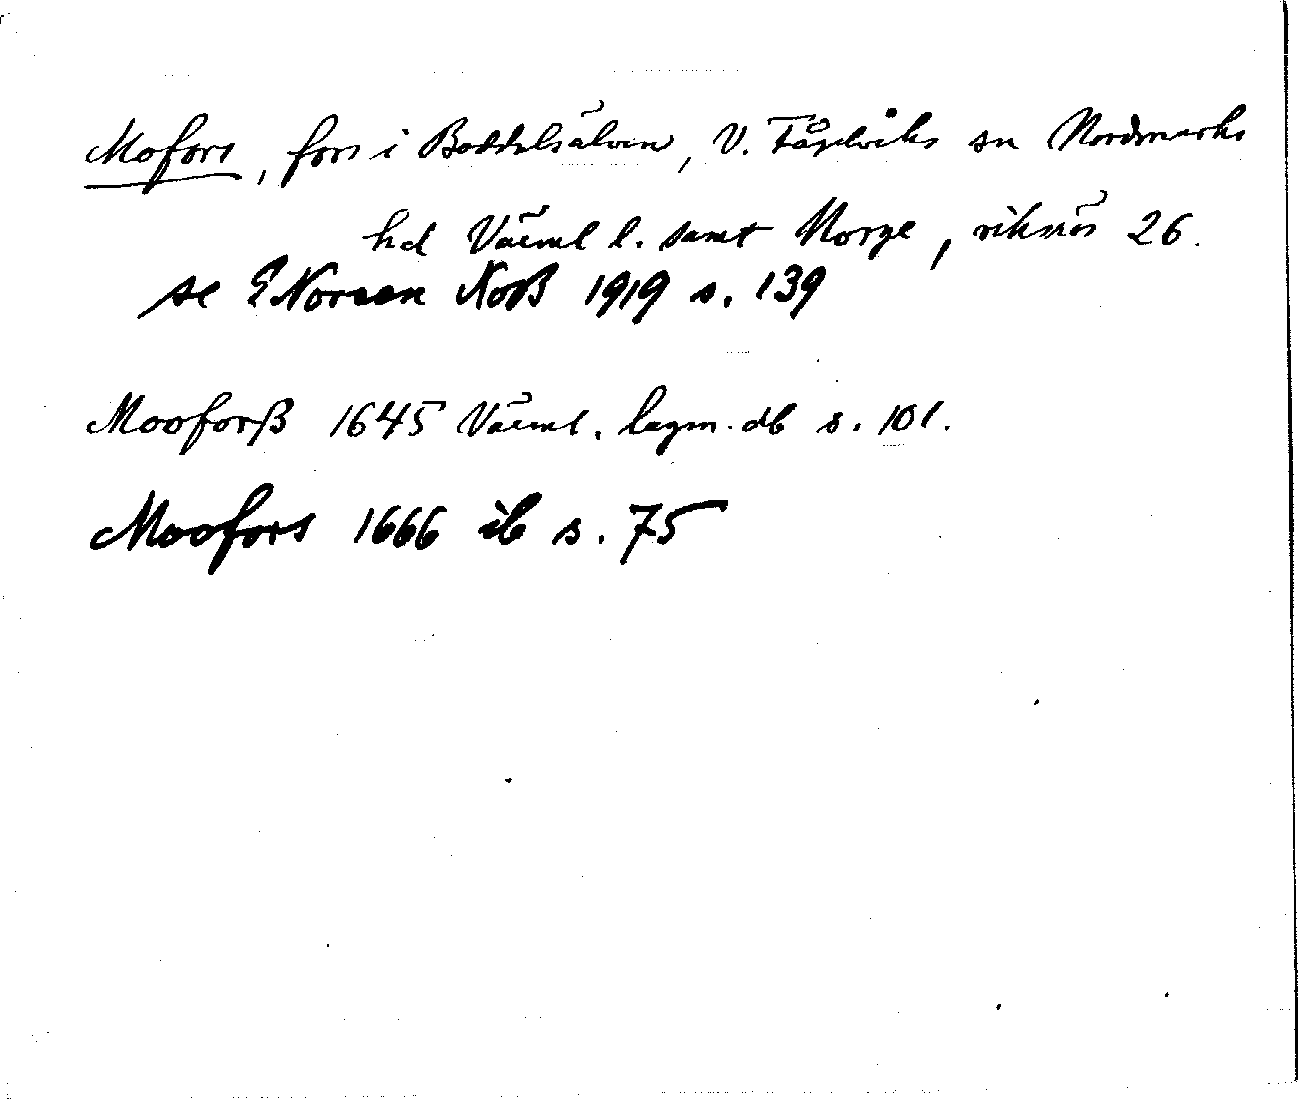 Mofors, fors i Boddelsälven, V. Fågelviks sn Nordmarks
hd Värml l. samt Norge, riksrös 26.
se E Noreen NoB 1919 s. 139
Mooforß 1645 Värml. lagm. db s. 101.
Moofors 1666 ib s. 75